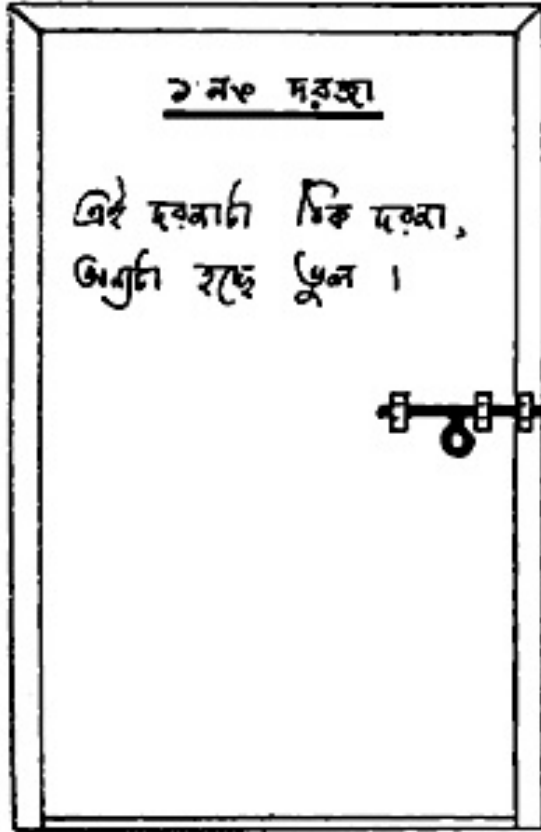 ১ নং দরজা
এই দরজাটা ঠিক দরজা,
অন্যটা হচ্ছে ভুল ।